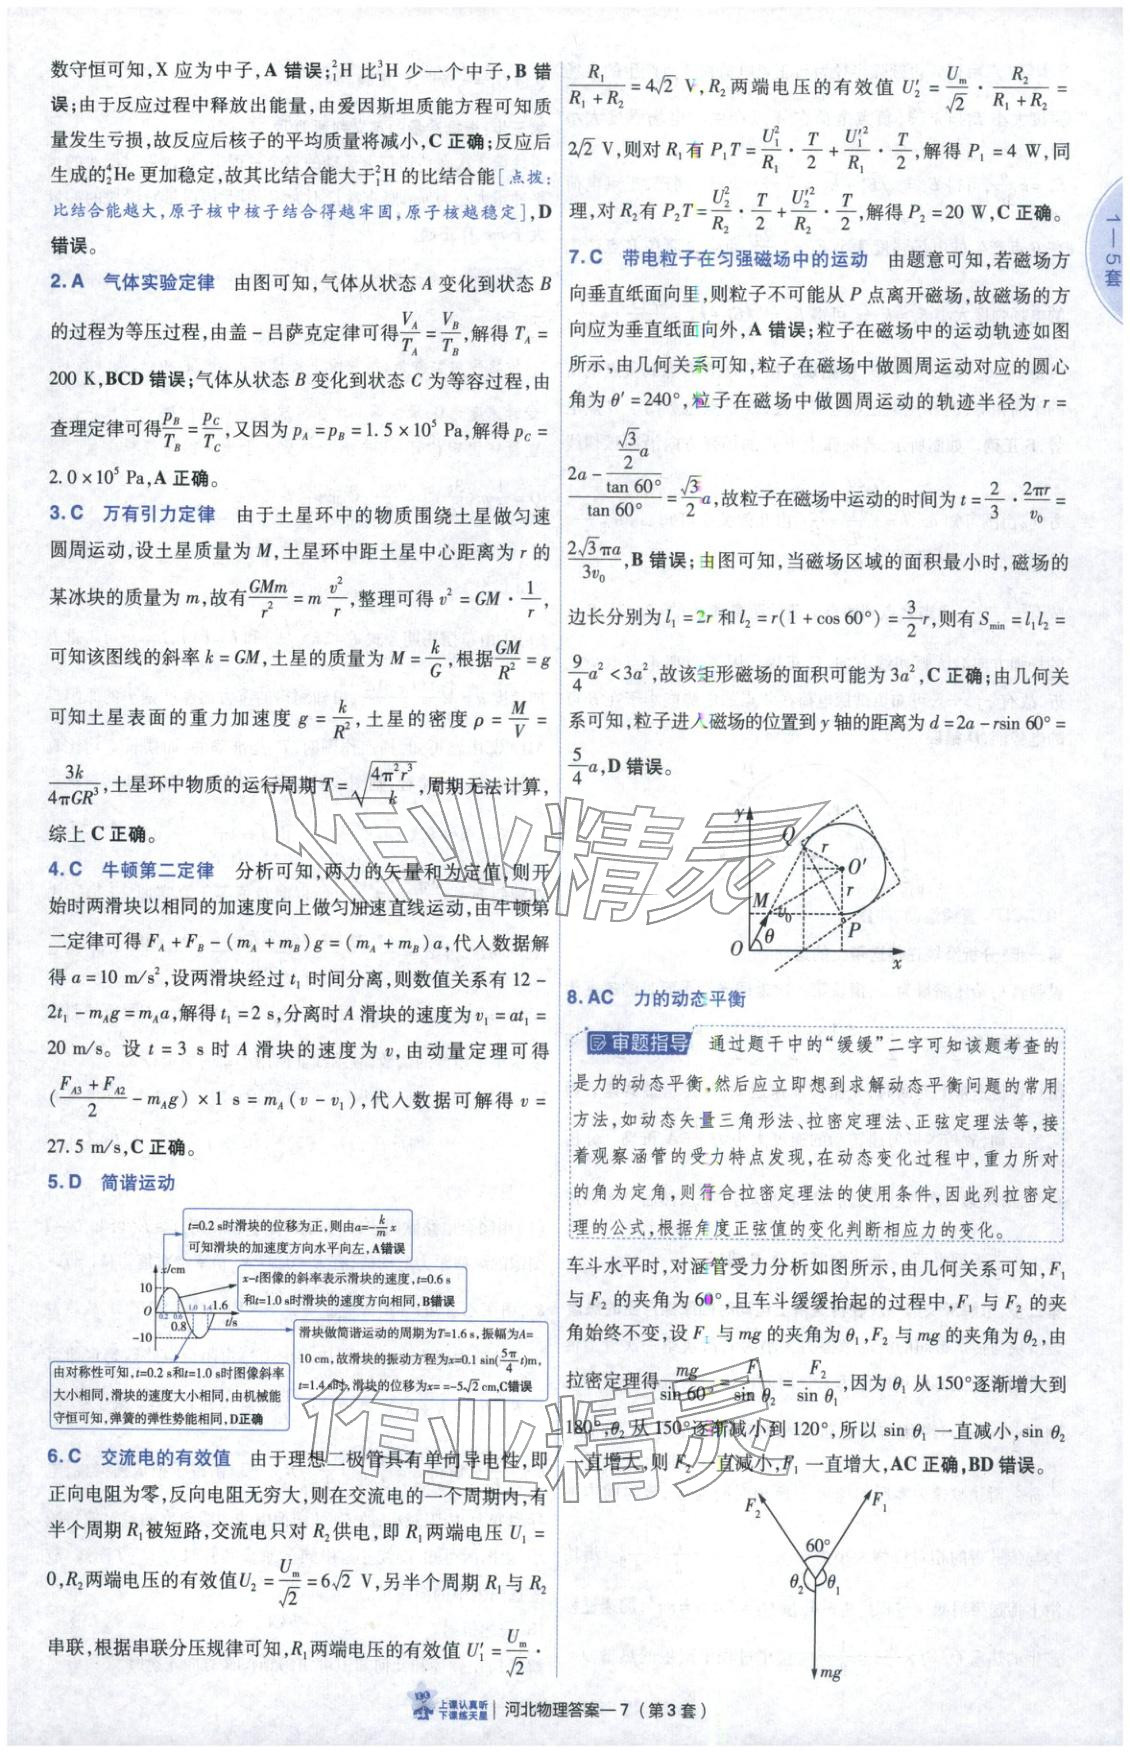 数守恒可知,X 应为中子,A 错误;²₁H 比³₁H 少一个中子,B 错
误;由于反应过程中释放出能量,由爱因斯坦质能方程可知质
量发生亏损,故反应后核子的平均质量将减小,C 正确;反应后
生成的⁴₂He 更加稳定,故其比结合能大于²₁H 的比结合能[点拨:
比结合能越大,原子核中核子结合得越牢固,原子核越稳定],D
错误。
2.A 气体实验定律 由图可知,气体从状态 A 变化到状态 B
的过程为等压过程,由盖-吕萨克定律可得 V_A/T_A = V_B/T_B,解得 T_A =
200 K,BCD 错误;气体从状态 B 变化到状态 C 为等容过程,由
查理定律可得 p_B/T_B = p_C/T_C,又因为 p_A = p_B = 1.5×10⁵ Pa,解得 p_C =
2.0×10⁵ Pa,A 正确。
3.C 万有引力定律 由于土星环中的物质围绕土星做匀速
圆周运动,设土星质量为 M,土星环中距土星中心距离为 r 的
某冰块的质量为 m,故有 GMm/r² = m v²/r,整理可得 v² = GM · 1/r,
可知该图线的斜率 k = GM,土星的质量为 M = k/G,根据 GM/R² = g
可知土星表面的重力加速度 g = k/R²,土星的密度 ρ = M/V =
3k/4πGR³,土星环中物质的运行周期 T = √(4π²r³/k),周期无法计算,
综上 C 正确。
4.C 牛顿第二定律 分析可知,两力的矢量和为定值,则开
始时两滑块以相同的加速度向上做匀加速直线运动,由牛顿第
二定律可得 F_A + F_B - (m_A + m_B)g = (m_A + m_B)a,代入数据解
得 a = 10 m/s²,设两滑块经过 t₁ 时间分离,则数值关系有 12 -
2t₁ - m_A g = m_A a,解得 t₁ = 2 s,分离时 A 滑块的速度为 v₁ = at₁ =
20 m/s。设 t = 3 s 时 A 滑块的速度为 v,由动量定理可得
((F_A3 + F_A2)/2 - m_A g) × 1 s = m_A (v - v₁),代入数据可解得 v =
27.5 m/s,C 正确。
5.D 简谐运动
t=0.2 s时滑块的位移为正,则由a=-k/m x
可知滑块的加速度方向水平向左,A错误
x/cm
10
0
-10
0.2 0.6
0.8
1.0 1.4
1.6
t/s
x-t图像的斜率表示滑块的速度,t=0.6 s
和t=1.0 s时滑块的速度方向相同,B错误
滑块做简谐运动的周期为T=1.6 s,振幅为A=
10 cm,故滑块的振动方程为x=0.1 sin(5π/4 t)m,
t=1.4 s时,滑块的位移为x= =-5√2 cm,C错误
由对称性可知,t=0.2 s和t=1.0 s时图像斜率
大小相同,滑块的速度大小相同,由机械能
守恒可知,弹簧的弹性势能相同,D正确
6.C 交流电的有效值 由于理想二极管具有单向导电性,即
正向电阻为零,反向电阻无穷大,则在交流电的一个周期内,有
半个周期 R₁被短路,交流电只对 R₂供电,即 R₁两端电压 U₁ =
0,R₂两端电压的有效值U₂ = U_m/√2 = 6√2 V,另半个周期 R₁与 R₂
串联,根据串联分压规律可知,R₁两端电压的有效值 U₁′ = U_m/√2 ·
R₁/(R₁ + R₂) = 4√2 V,R₂两端电压的有效值 U₂′ = U_m/√2 · R₂/(R₁ + R₂) =
2√2 V,则对 R₁有 P₁T = U₁²/R₁ · T/2 + U₁′²/R₁ · T/2,解得 P₁ = 4 W,同
理,对 R₂有 P₂T = U₂²/R₂ · T/2 + U₂′²/R₂ · T/2,解得 P₂ = 20 W,C 正确。
7.C 带电粒子在匀强磁场中的运动 由题意可知,若磁场方
向垂直纸面向里,则粒子不可能从 P 点离开磁场,故磁场的方
向应为垂直纸面向外,A 错误;粒子在磁场中的运动轨迹如图
所示,由几何关系可知,粒子在磁场中做圆周运动对应的圆心
角为 θ′ = 240°,粒子在磁场中做圆周运动的轨迹半径为 r =
(2a - (√3/2 a)/tan 60°)/tan 60° = √3/2 a,故粒子在磁场中运动的时间为 t = 2/3 · 2πr/v₀ =
2√3πa/3v₀,B 错误;由图可知,当磁场区域的面积最小时,磁场的
边长分别为 l₁ = 2r 和 l₂ = r(1 + cos 60°) = 3/2 r,则有 S_min = l₁l₂ =
9/4 a² < 3a²,故该矩形磁场的面积可能为 3a²,C 正确;由几何关
系可知,粒子进入磁场的位置到 y 轴的距离为 d = 2a - rsin 60° =
5/4 a,D 错误。
y
Q
r
O′
M
v₀
r
P
O
θ
x
8.AC 力的动态平衡
审题指导 通过题干中的“缓缓”二字可知该题考查的
是力的动态平衡,然后应立即想到求解动态平衡问题的常用
方法,如动态矢量三角形法、拉密定理法、正弦定理法等,接
着观察涵管的受力特点发现,在动态变化过程中,重力所对
的角为定角,则符合拉密定理法的使用条件,因此列拉密定
理的公式,根据角度正弦值的变化判断相应力的变化。
车斗水平时,对涵管受力分析如图所示,由几何关系可知,F₁
与 F₂ 的夹角为 60°,且车斗缓缓抬起的过程中,F₁ 与 F₂ 的夹
角始终不变,设 F₁ 与 mg 的夹角为 θ₁,F₂ 与 mg 的夹角为 θ₂,由
拉密定理得 mg/sin 60° = F₁/sin θ₂ = F₂/sin θ₁,因为 θ₁ 从 150°逐渐增大到
180°,θ₂ 从 150°逐渐减小到 120°,所以 sin θ₁ 一直减小,sin θ₂
一直增大,则 F₂ 一直减小,F₁ 一直增大,AC 正确,BD 错误。
F₂
F₁
60°
θ₂
θ₁
mg
1—5套
上课认真听
下课练天星
河北物理答案—7(第3套)
作业精灵
作业精灵